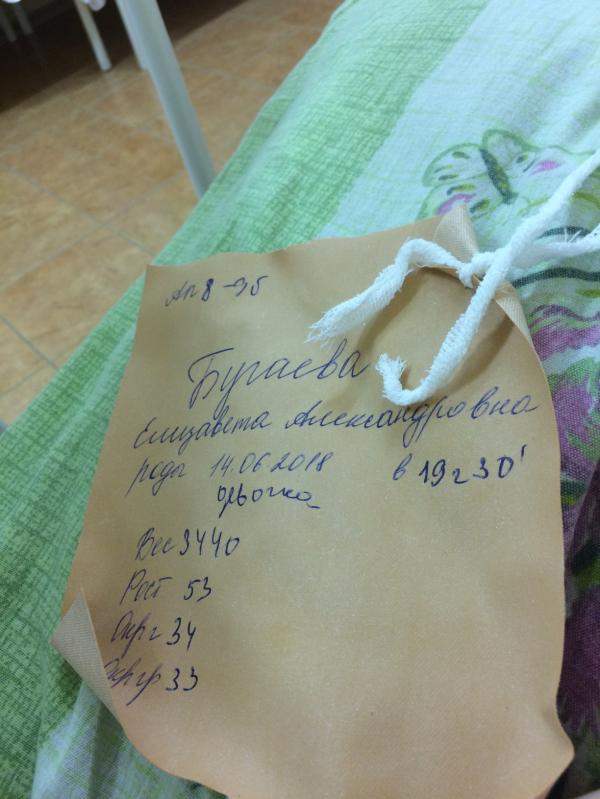 Ап 8-9б
Бугаева
Елизавета Александровна
роды 14.06.2018 в 19г 30'
девочка
Вес 3440
Рост 53
Окр г 34
Окр гр 33